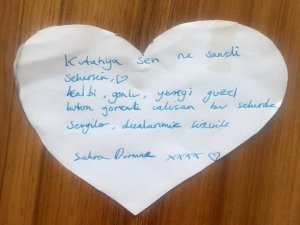 Kutahya sen ne sansli
sehirsin, ♡
Kalbi, gonlu, yuregi guzel
butun gorevli calisan bu sehirde
Sevgiler, dualarimiz sizinle
Durmaz xxxx ♡